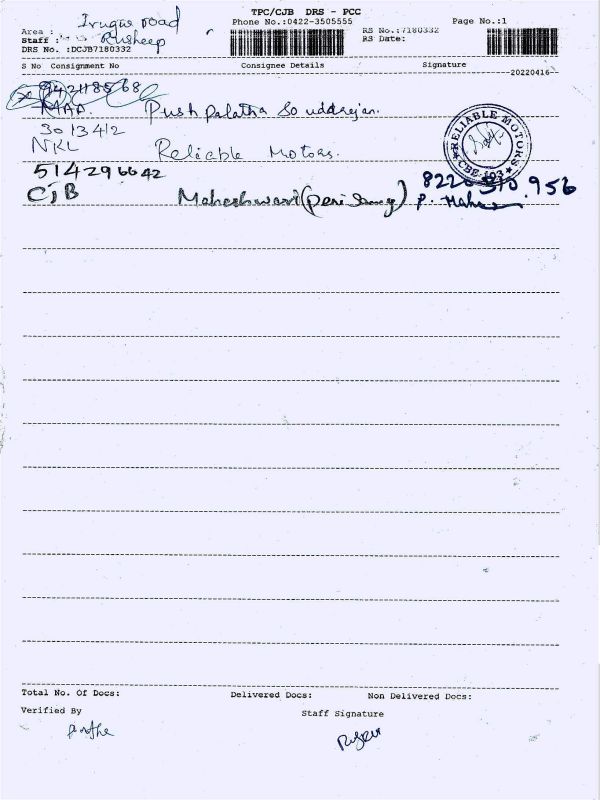 TPC/CJB DRS - PCC
Phone No.:0422-3505555
Page No.:1
Area : Irugur road
Staff :
DRS No. :DCJB7180332
RS No.:7180332
RS Date:
S No Consignment No Consignee Details Signature
20220416
Pushpalatha Soundarajan.
3013412
NKL Reliable Motors.
RELIABLE MOTORS
CBE-103
514296642
CJB Maheshwari (Peri Samy)
8220 510 956
P. Mahe
Total No. Of Docs: Delivered Docs: Non Delivered Docs:
Verified By
Staff Signature